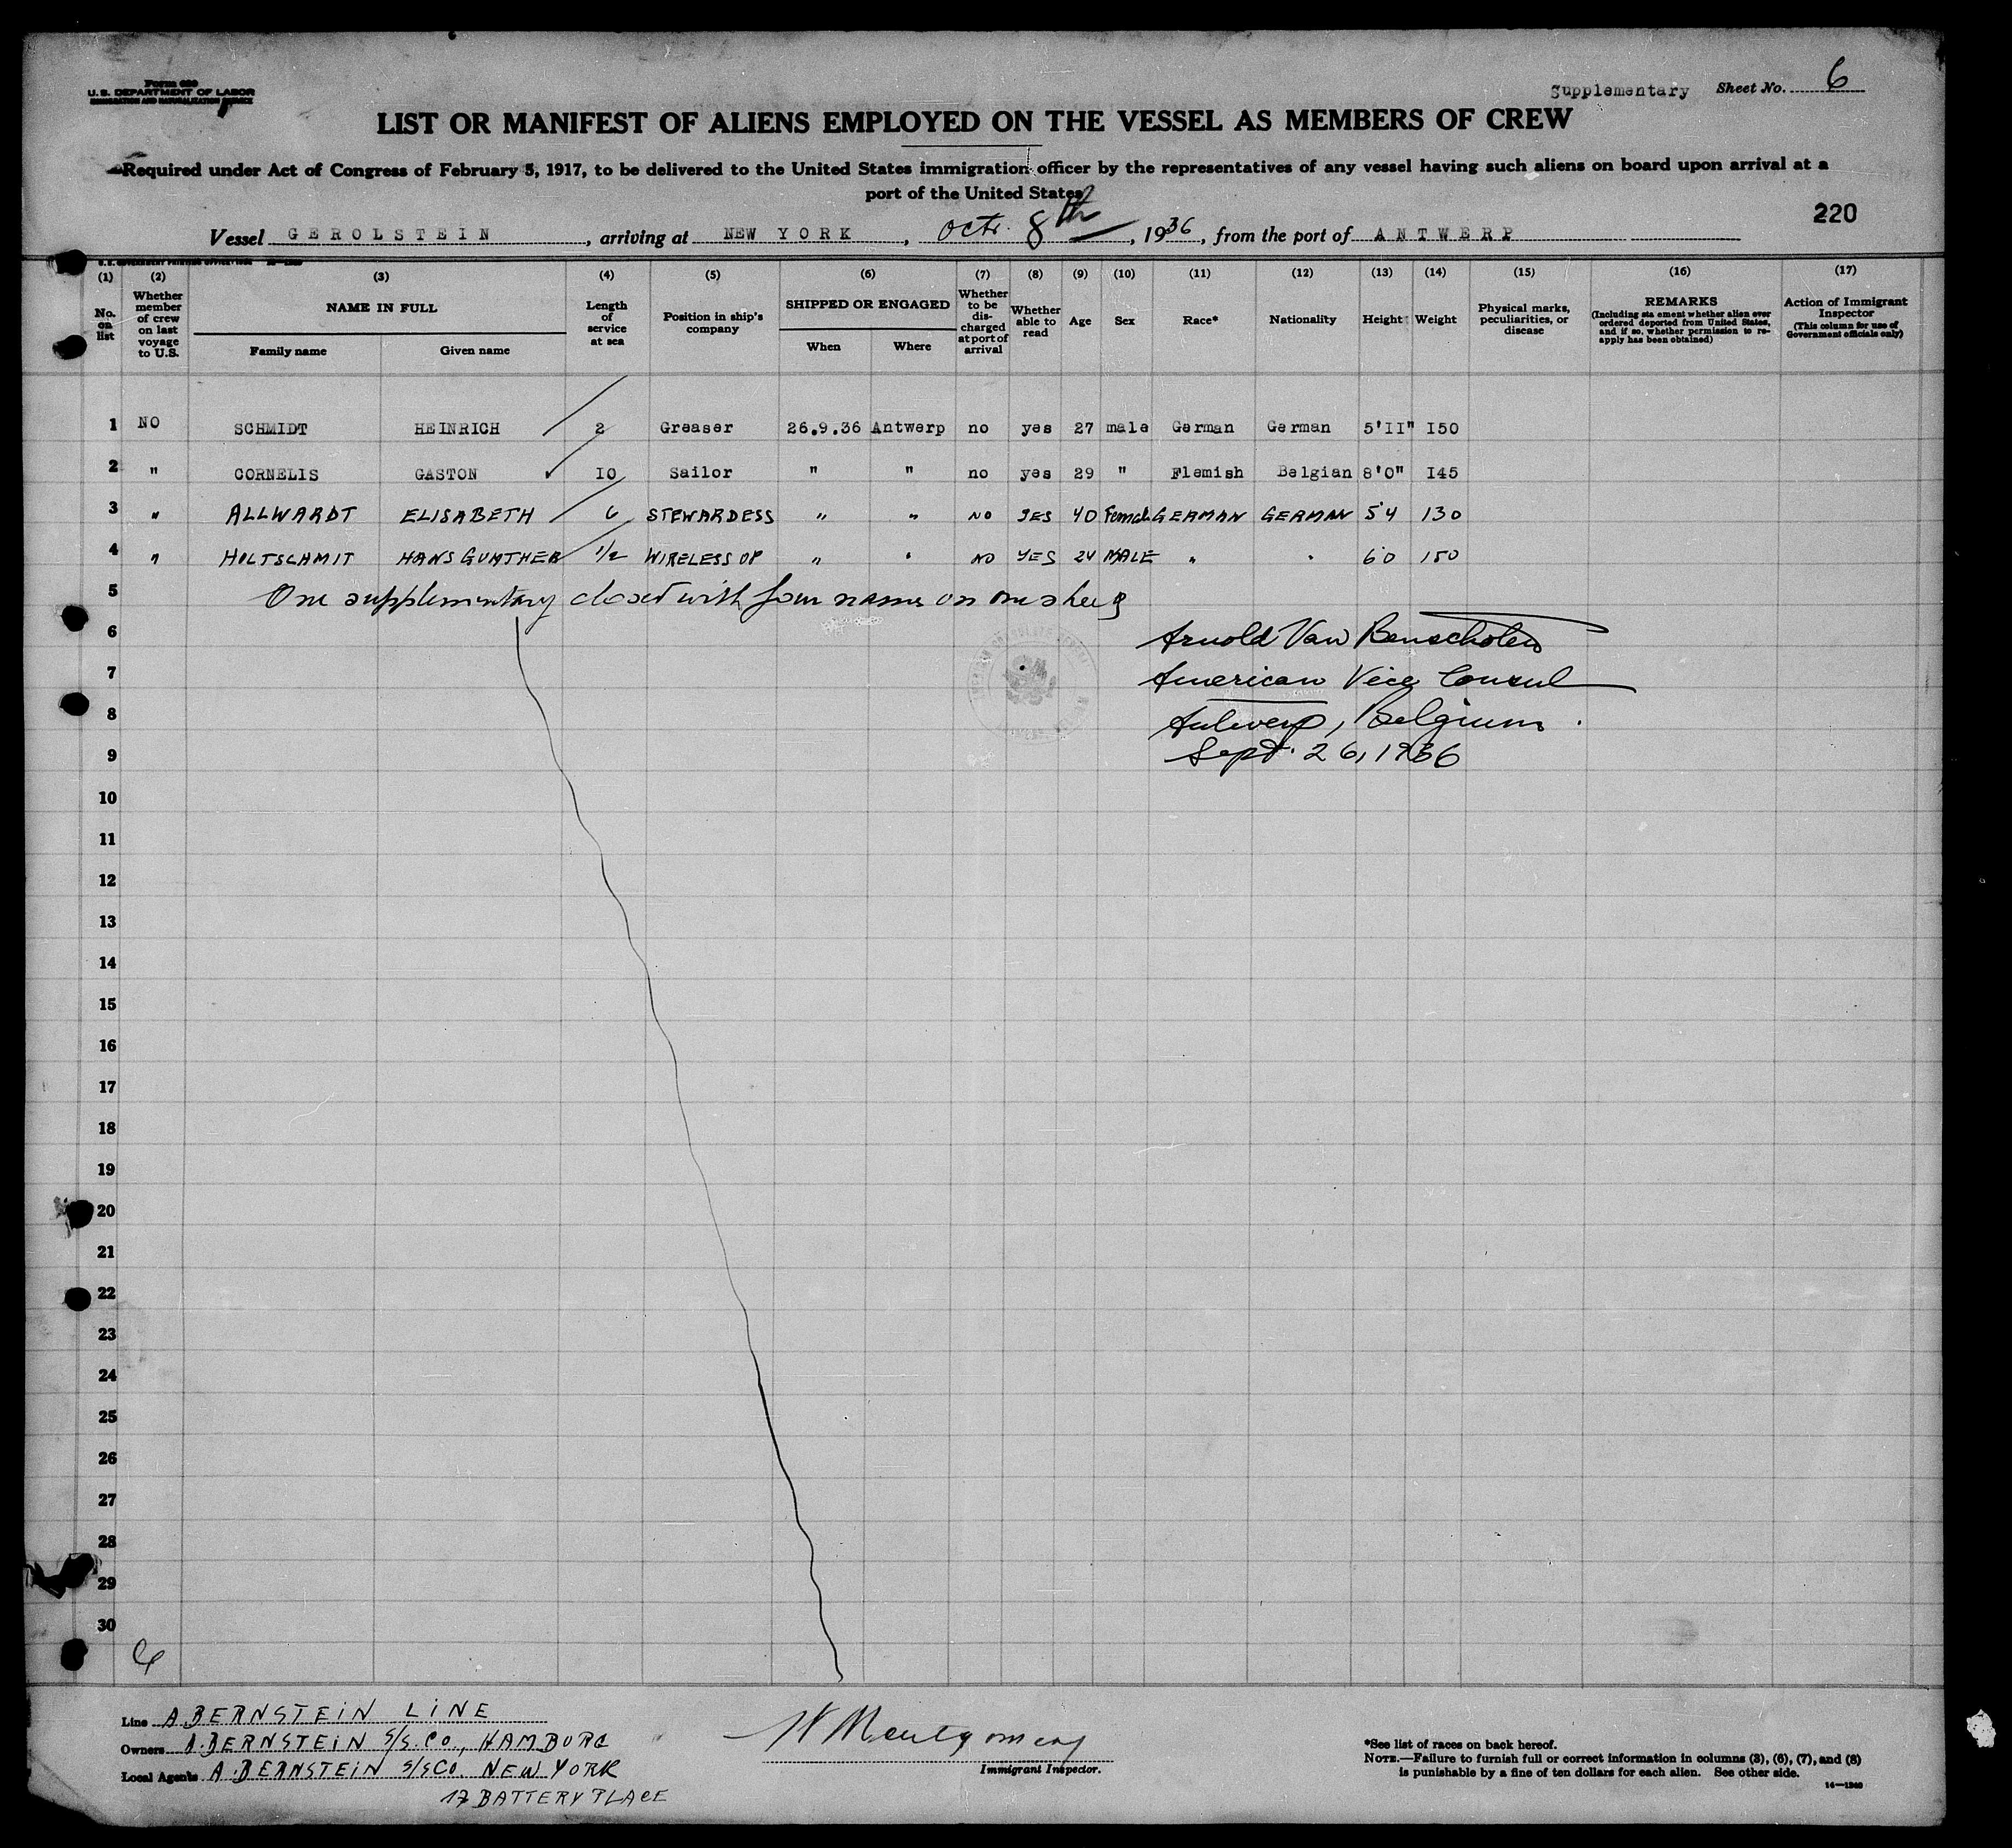 Form 689
U. S. DEPARTMENT OF LABOR
IMMIGRATION AND NATURALIZATION SERVICE
Supplementary Sheet No. 6
LIST OR MANIFEST OF ALIENS EMPLOYED ON THE VESSEL AS MEMBERS OF CREW
Required under Act of Congress of February 5, 1917, to be delivered to the United States immigration officer by the representatives of any vessel having such aliens on board upon arrival at a
port of the United States
220
Vessel GEROLSTEIN, arriving at NEW YORK, Oct. 8th, 1936, from the port of ANTWERP
(1) (2) (3) (4) (5) (6) (7) (8) (9) (10) (11) (12) (13) (14) (15) (16) (17)
No. on list
Whether member of crew on last voyage to U.S.
NAME IN FULL
Family name
Given name
Length of service at sea
Position in ship's company
SHIPPED OR ENGAGED
When
Where
Whether to be discharged at port of arrival
Whether able to read
Age
Sex
Race*
Nationality
Height
Weight
Physical marks, peculiarities, or disease
REMARKS
(Including sta ement whether alien ever ordered deported from United States, and if so, whether permission to reapply has been obtained)
Action of Immigrant Inspector
(This column for use of Government officials only)
1 NO SCHMIDT HEINRICH 2 Greaser 26.9.36 Antwerp no yes 27 male German German 5'II" I50
2 " CORNELIS GASTON I0 Sailor " " no yes 29 " Flemish Belgian 8'0" I45
3 " ALLWARDT ELISABETH 6 STEWARDESS " " NO YES 40 Female GERMAN GERMAN 5'4 130
4 " HOLTSCHMIT HANS GUNTHER 1/2 WIRELESS OP " " NO YES 24 MALE " " 6'0 150
5 One supplementary closed with four names on one sheet
6 Arnold Van Benschoten
7 American Vice Consul
8 Antwerp, Belgium.
9 Sept. 26, 1936
10
11
12
13
14
15
16
17
18
19
20
21
22
23
24
25
26
27
28
29
30
Line A. BERNSTEIN LINE
Owners A. BERNSTEIN S/S. Co., HAMBURG
Local Agents A. BERNSTEIN S/S Co. NEW YORK
17 BATTERY PLACE
Montgomery
Immigrant Inspector.
*See list of races on back hereof.
NOTE.—Failure to furnish full or correct information in columns (3), (6), (7), and (8)
is punishable by a fine of ten dollars for each alien. See other side.